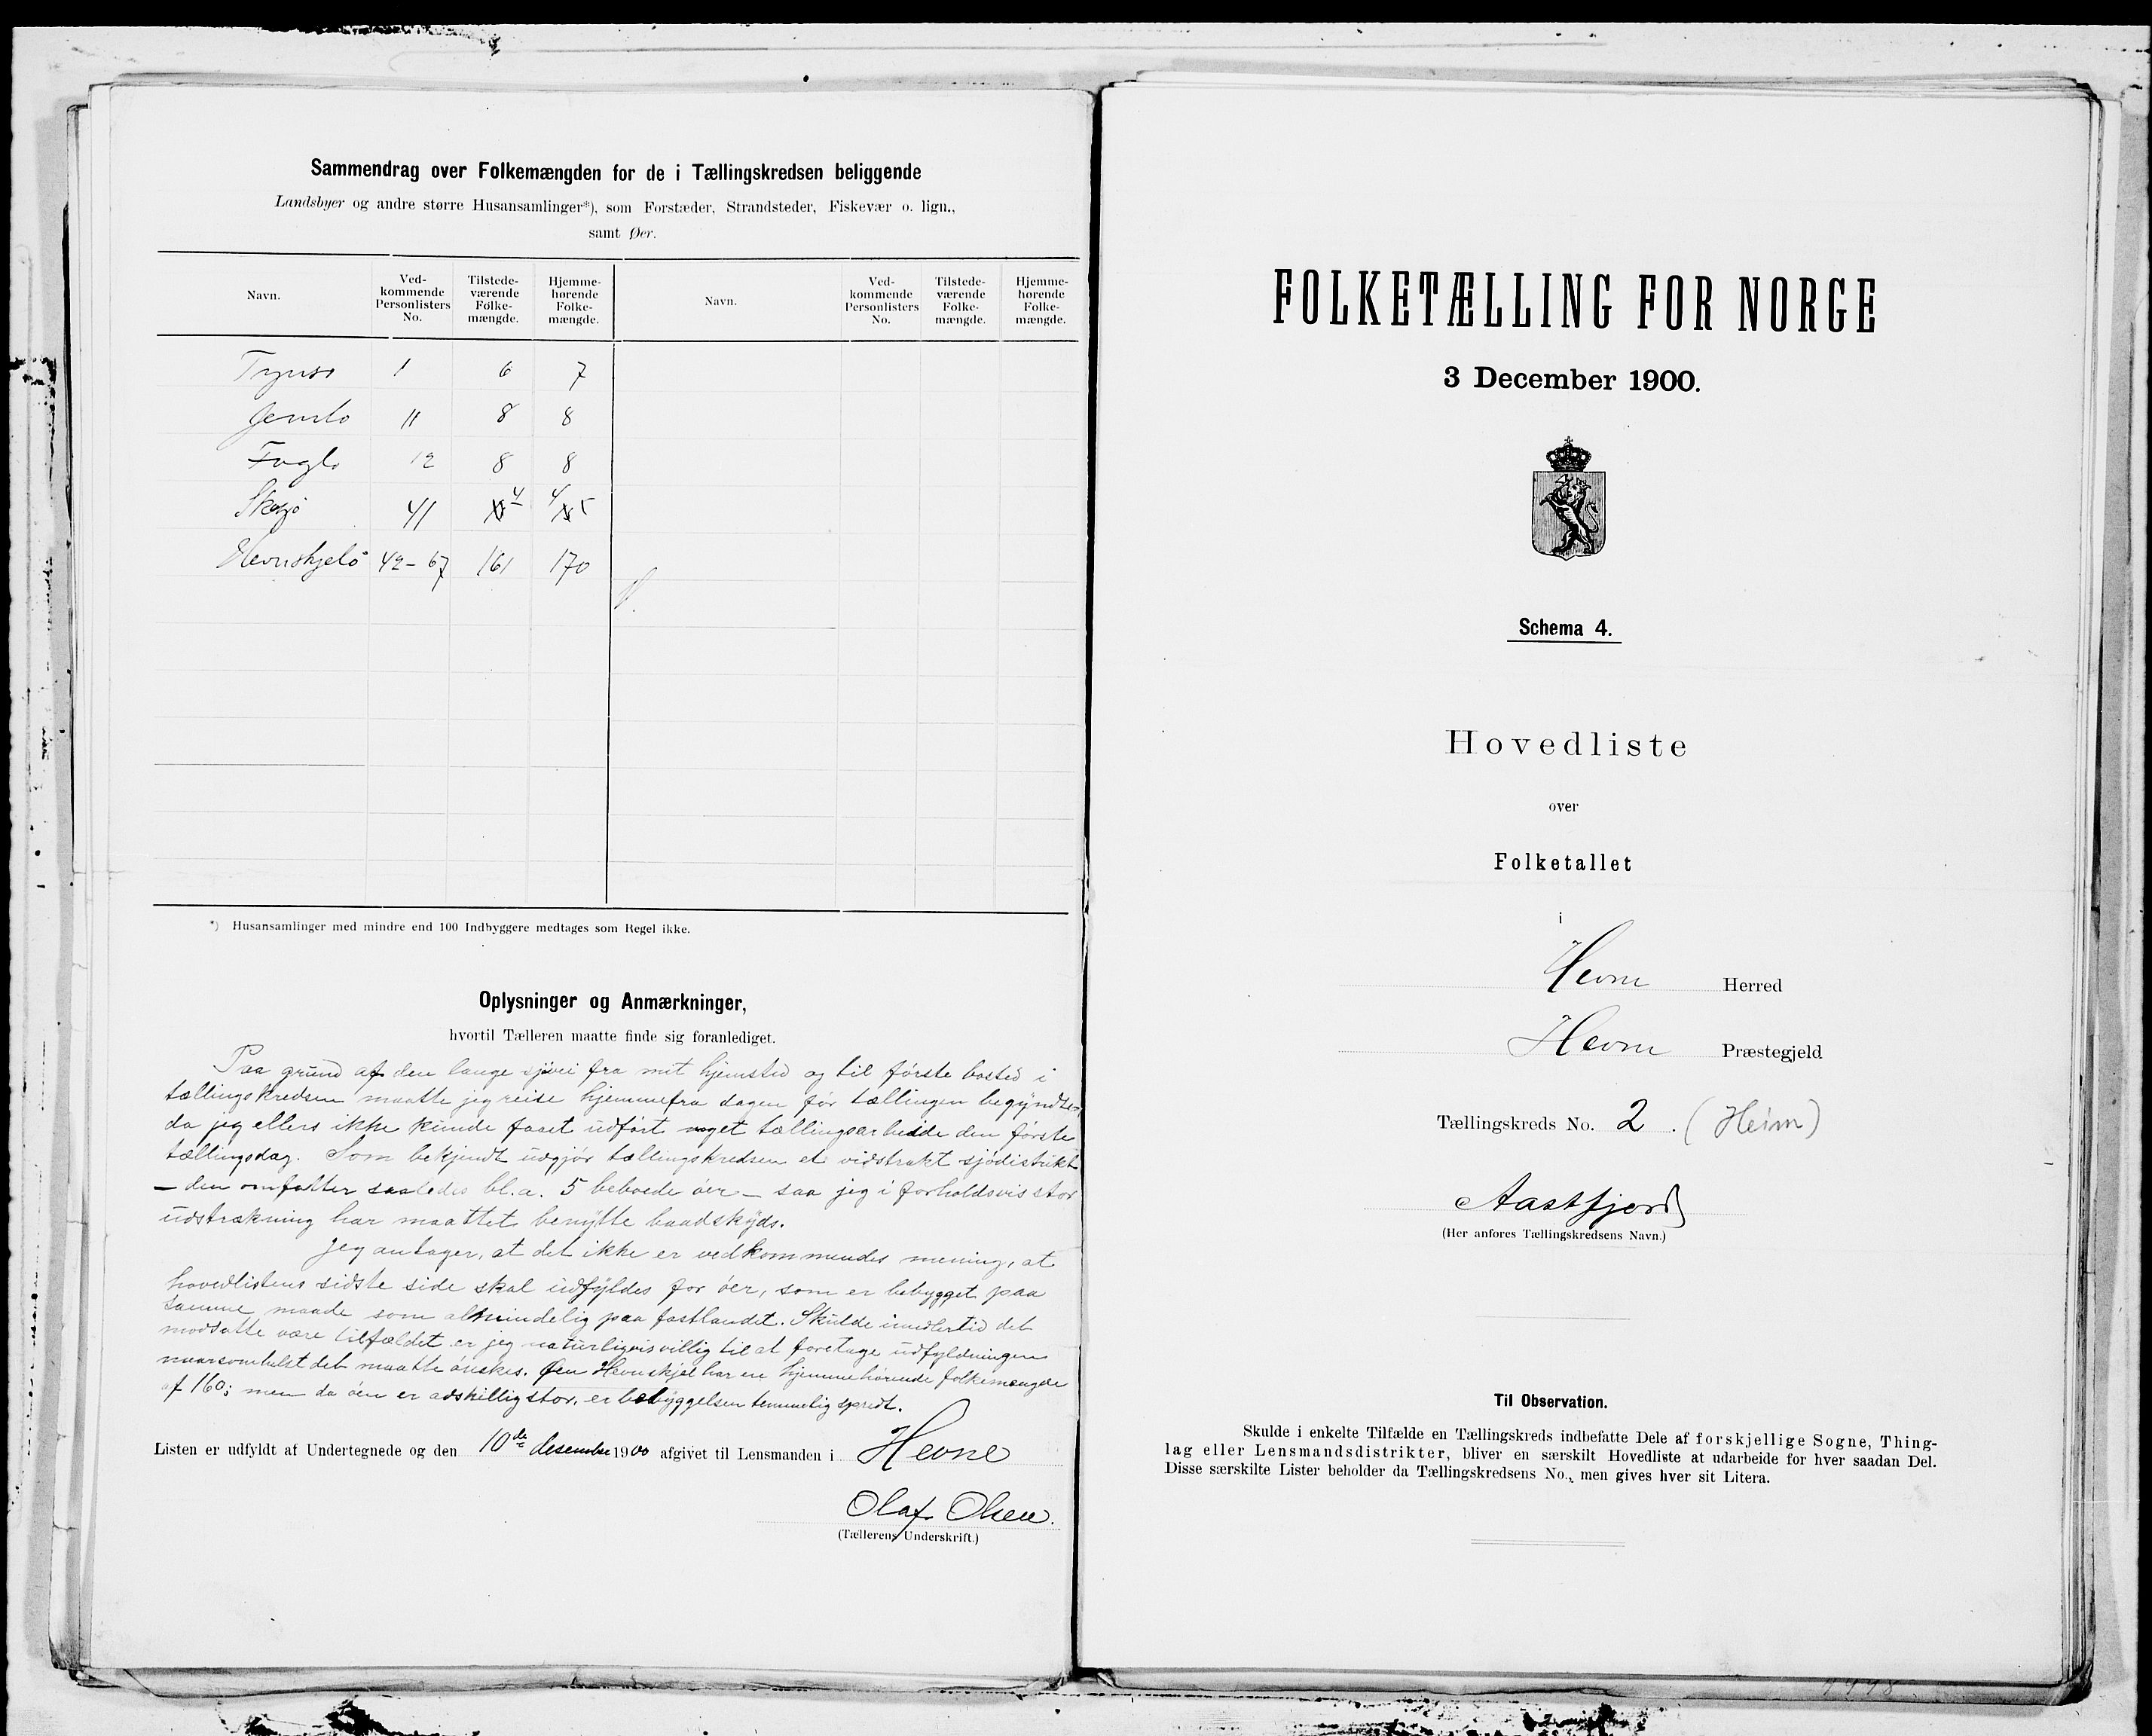 Sammendrag over Folkemængden for de i Tællingskredsen beliggende
Landsbyer og andre større Husansamlinger*), som Forstæder, Strandsteder, Fiskevær o. lign.,
samt Øer.
Navn. Ved-kommende Personlisters No. Tilstede-værende Folke-mængde. Hjemme-hørende Folke-mængde. Navn. Ved-kommende Personlisters No. Tilstede-værende Folke-mængde. Hjemme-hørende Folke-mængde.
1 6 7
Jemlo 11 8 8
Fuglo 12 8 8
41 4 4 5
Hevnskjelö 42-67 161 170
*) Husansamlinger med mindre end 100 Indbyggere medtages som Regel ikke.
Oplysninger og Anmærkninger,
hvortil Tælleren maatte finde sig foranlediget.
Paa grund af den lange sjövei fra mit hjemsted og til förste bosted i
tællingskredsen maatte jeg reise hjemmefra dagen för tællingen begyndte,
da jeg ellers ikke kunde faaet udfört noget tællingsarbeide den förste
tællingsdag. Som bekjendt udgjör tællingskredsen et vidstrakt sjödistrikt
– den omfatter saaledes bl.a. 5 beboede öer – saa jeg i forholdsvis stor
udstrækning har maattet benytte baadskyds.
Jeg antager, at det ikke er vedkommendes mening, at
hovedlistens sidste side skal udfyldes for öer, som er bebygget paa
samme maade som almindelig paa fastlandet. Skulde imidlertid det
modsatte være tilfældet er jeg naturligvis villig til at foretage udfyldningen
naarsomhelst det maatte önskes. Öen Hevnskjel har en hjemmehörende folkemængde
af 160; men da öen er adskillig stor, er bebyggelsen temmelig spredt.
Listen er udfyldt af Undertegnede og den 10de desember 1900 afgivet til Lensmanden i Hevne
Olaf Olsen.
(Tællerens Underskrift.)
FOLKETÆLLING FOR NORGE
3 December 1900.
Schema 4.
Hovedliste
over
Folketallet
i
Hevne Herred
Hevne Præstegjeld
Tællingskreds No. 2. (Heim)
Aastfjord
(Her anføres Tællingskredsens Navn.)
Til Observation.
Skulde i enkelte Tilfælde en Tællingskreds indbefatte Dele af forskjellige Sogne, Thing-
lag eller Lensmandsdistrikter, bliver en særskilt Hovedliste at udarbeide for hver saadan Del.
Disse særskilte Lister beholder da Tællingskredsens No., men gives hver sit Litera.